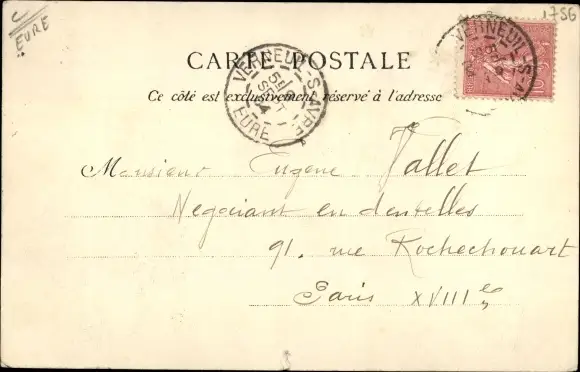 C
EURE
1756
CARTE POSTALE
Ce côté est exclusivement réservé à l'adresse
VERNEUIL-S-AVRE
EURE
VERNEUIL-S-AV
Monsieur Eugene Vallet
Negociant en dentelles
91. rue Rochechouart
Paris XVIIIe